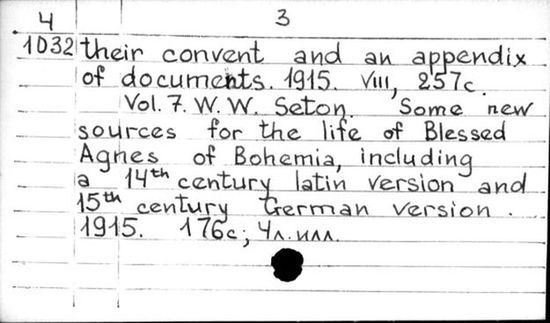 4 3
1032 their convent and an appendix
of documents. 1915. VIII, 257c.
Vol. 7. W. W. Seton. Some new
sources for the life of Blessed
Agnes of Bohemia, including
a 14th century latin version and
15th century German version.
1915. 176c; 4л. илл.